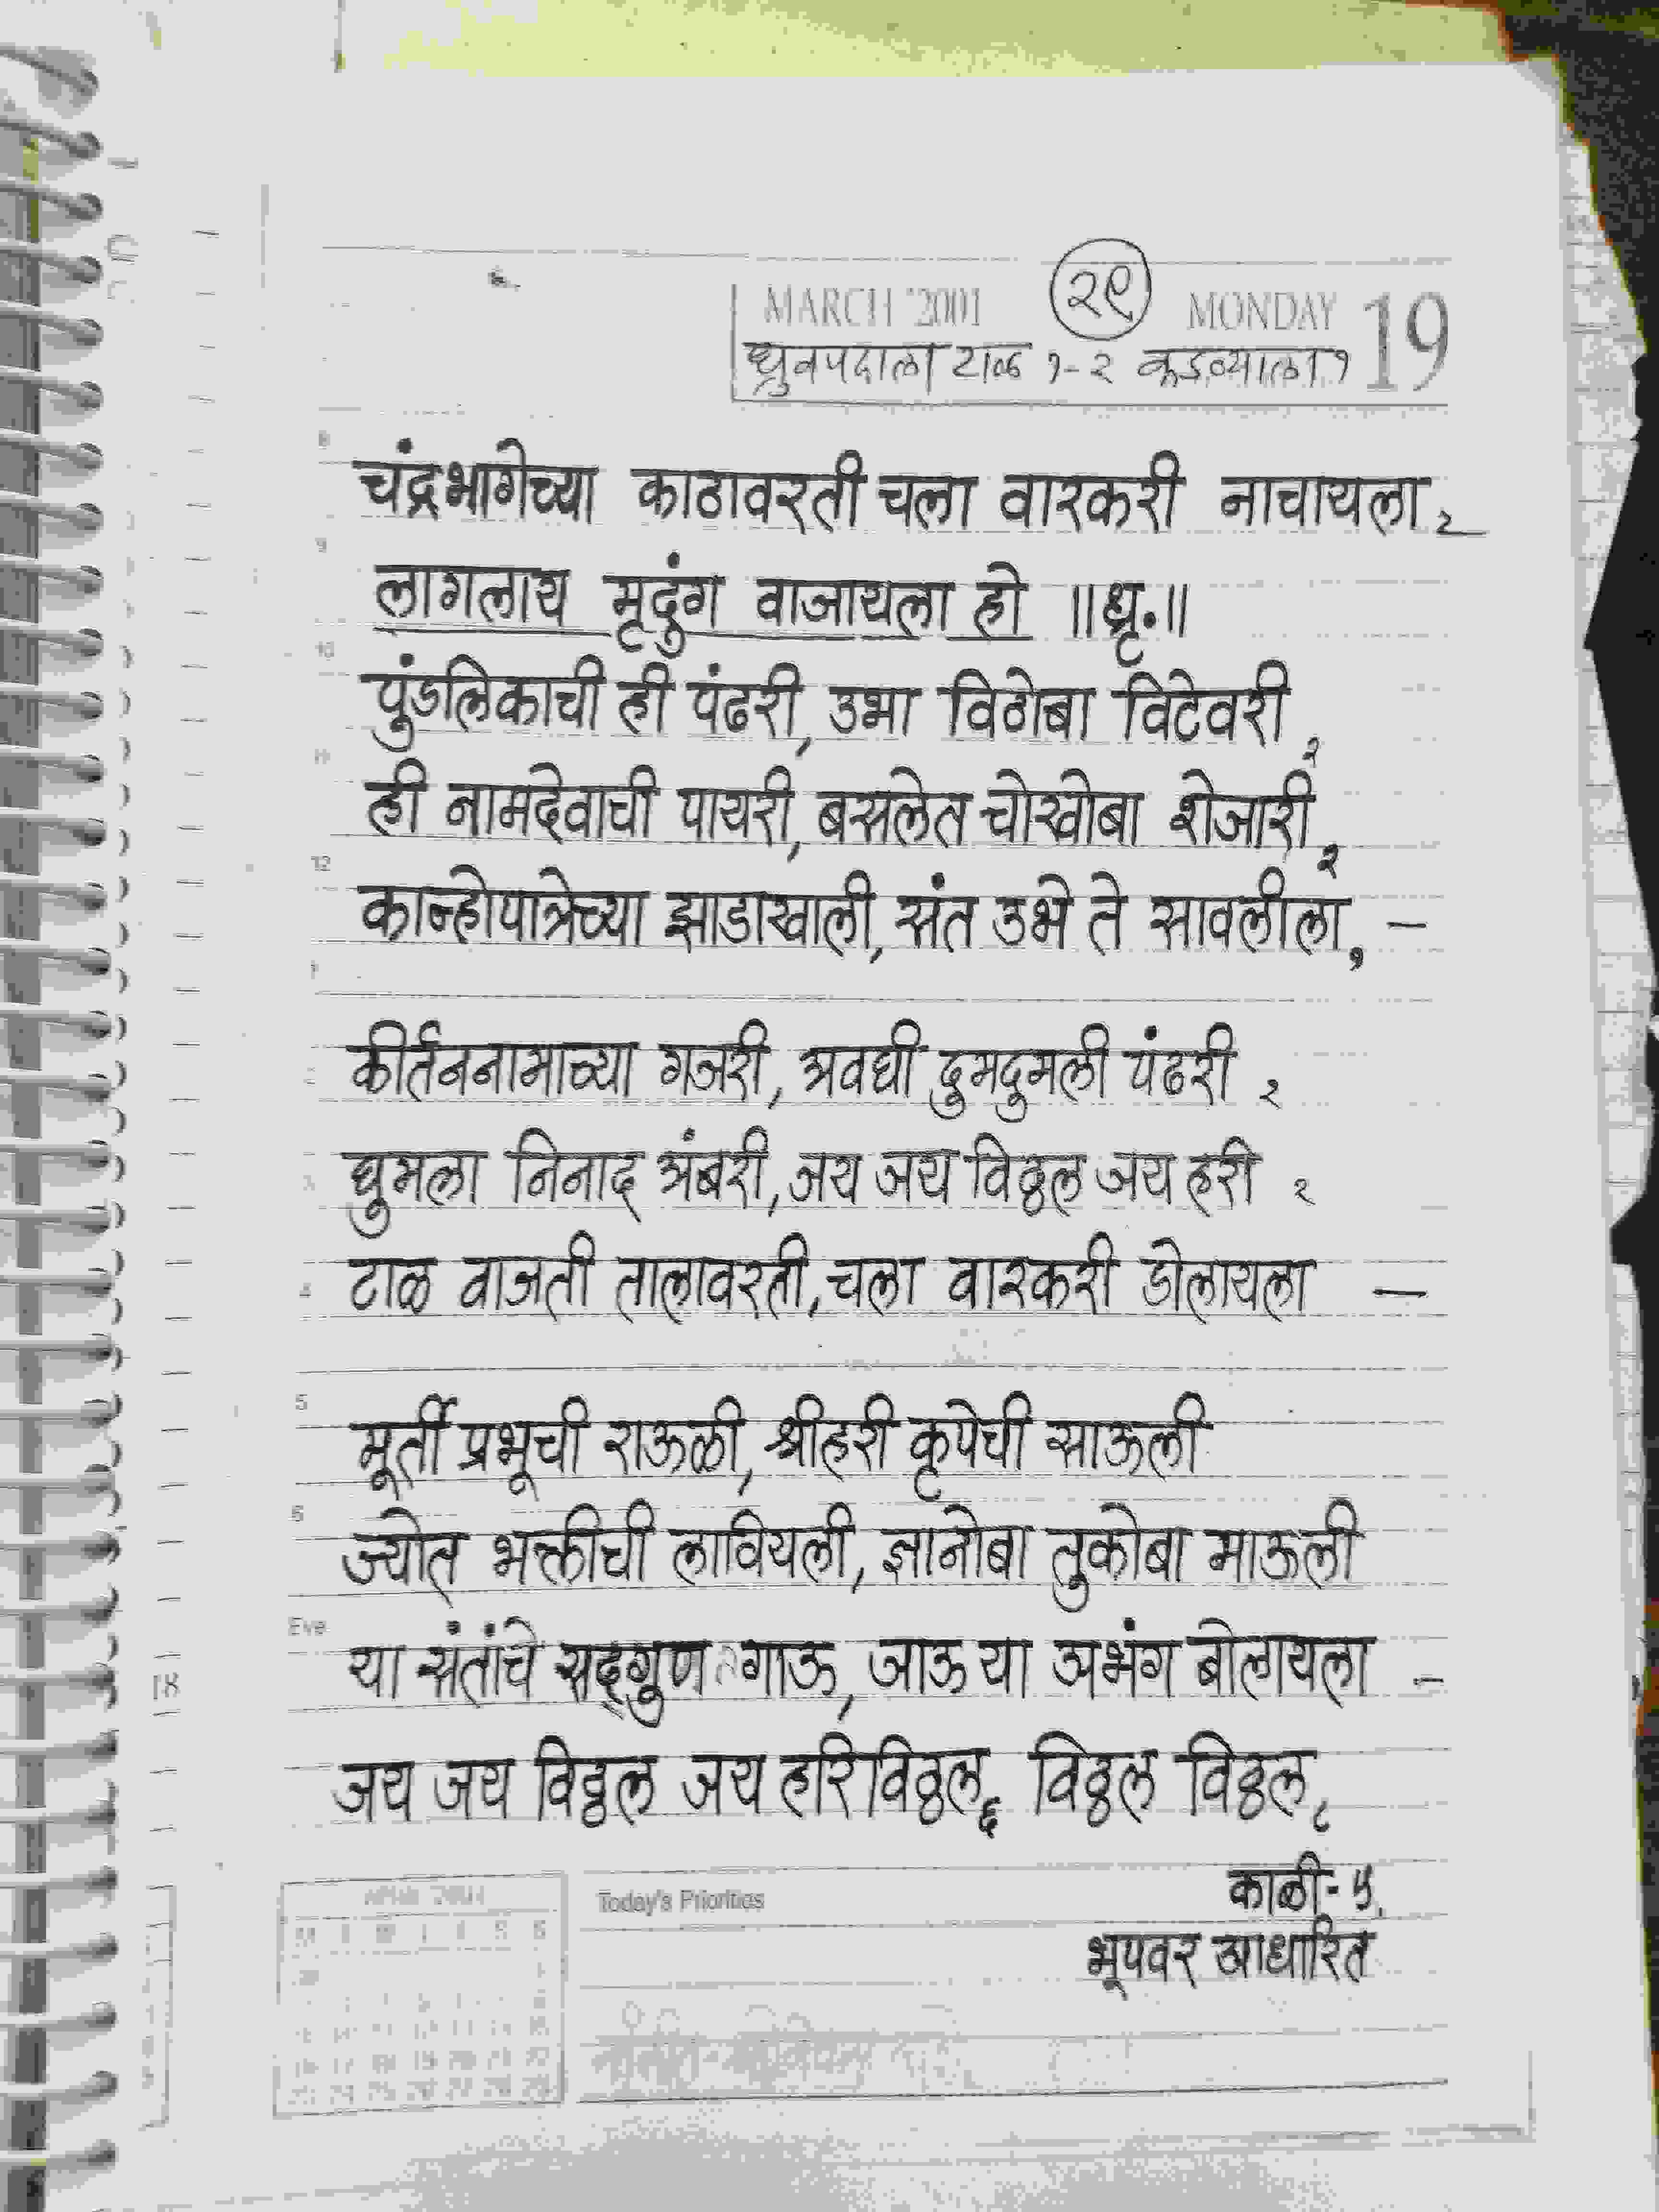 २९
MARCH '2001 MONDAY 19
ध्रुवपदाला टाळ १-२ कडव्याला १
8
चंद्रभागेच्या काठावरती चला वारकरी नाचायला, २
9
लागलाय मृदुंग वाजायला हो ॥ध्रृ.॥
10
पुंडलिकाची ही पंढरी, उभा विठोबा विटेवरी, २
11
ही नामदेवाची पायरी, बसलेत चोखोबा शेजारी, २
12
कान्होपात्रेच्या झाडाखाली, संत उभे ते सावलीला, १ —
कीर्तननामाच्या गजरी, अवघी दुमदुमली पंढरी २
घुमला निनाद अंबरी, जय जय विठ्ठल जय हरी २
टाळ वाजती तालावरती, चला वारकरी डोलायला —
5
मूर्ती प्रभूची राऊळी, श्रीहरी कृपेची साऊली
6
ज्योत भक्तीची लावियली, ज्ञानोबा तुकोबा माऊली
Eve
या संतांचे सद्‌गुण गाऊ, जाऊ या अभंग बोलायला -
18
जय जय विठ्ठल जय हरिविठ्ठल ६ विठ्ठल विठ्ठल ८
काळी - ५
Today's Priorities
भूपवर आधारित